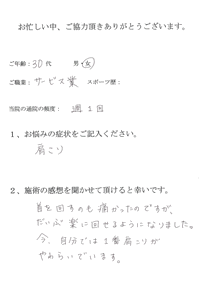 お忙しい中、ご協力頂きありがとうございます。
ご年齢：30代 男・女
ご職業：サービス業 スポーツ歴：
当院の通院の頻度： 週1回
1、お悩みの症状をご記入ください。
肩こり
2、施術の感想を聞かせて頂けると幸いです。
首を回すのも痛かったのですが、
だいぶ楽に回せるようになりました。
今、自分では1番肩こりが
やわらいでいます。